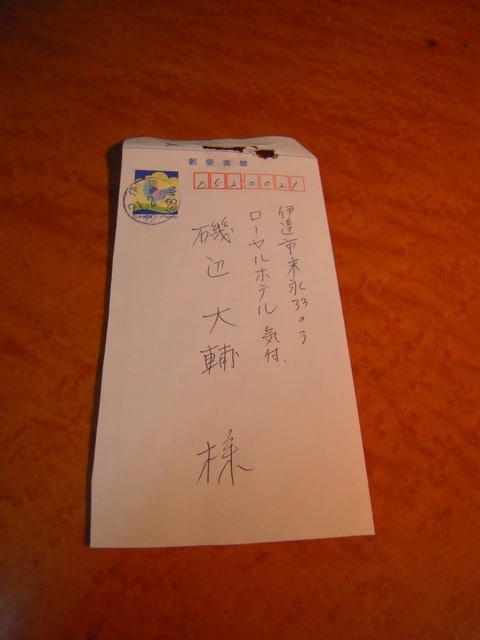 郵便書簡
052-0021
伊達市末永33の3
ローヤルホテル気付
磯辺大輔様
60